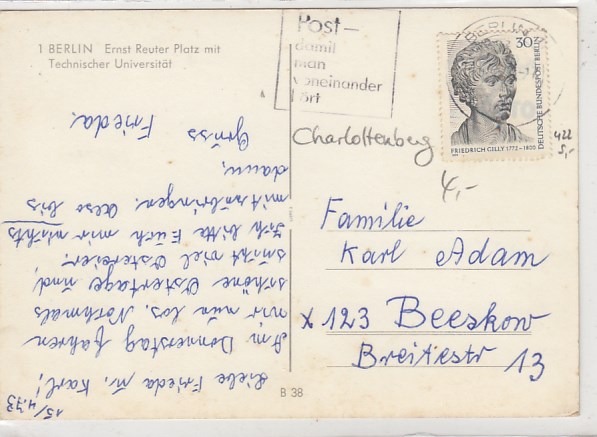 1 BERLIN Ernst Reuter Platz mit
Technischer Universität
Post –
damit
man
voneinander
hört
BERLIN
30
DEUTSCHE BUNDESPOST BERLIN
FRIEDRICH GILLY 1772–1800
422
5,-
Charlottenberg
4,-
Familie
Karl Adam
x 123 Beeskow
Breitestr 13
B 38
15/4.73
Liebe Frieda u. Karl!
Am Donnerstag fahren
wir nun los. Nochmals
schöne Ostertage und
sucht viel Ostereier.
Ich bitte Euch mir nichts
mitzubringen. Also bis
dann,
Gruss
Frieda.